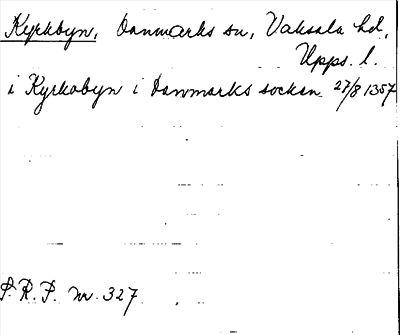 Kyrkbyn, Danmarks sn, Vaksala hd,
Upps. l.
i Kyrkobyn i Danmarks sockan 27/8 1357
S. R. P. nr. 327.